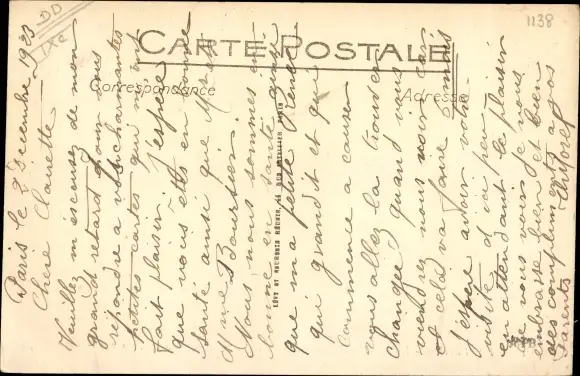 DD
IXe
1138
CARTE POSTALE
Correspondance
Adresse
LÉVY ET NEURDEIN RÉUNIS, 44, RUE LETELLIER, PARIS
Paris le 8 Décembre 1923
Chère Clairette
Veuillez m'escusez de mon
grand retard pour vous
répondre a vos charmantes
petites cartes qui m'ont
fait plaisir, j'espère
que vous êtes en bonne
santé ainsi que Mr et
Mme Boursier.
Nous nous sommes en
bonne santé ainsi
que ma petite
qui grandit et qui
commence a causer
vous allez la trouver
changée quand vous
viendrez nous voir car
cela va faire
j'espère avoir votre
visite d'ici peu
en attendant le plaisir
de vous voir je vous
embrasse bien et bien
des compliments a vos
parents